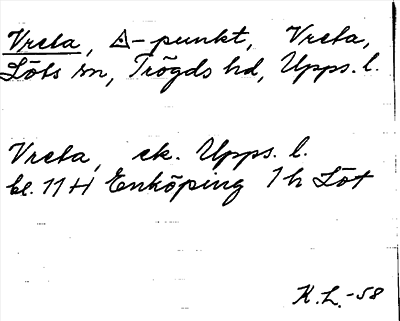 Vreta, △-punkt, Vreta,
Löts sn, Trögds hd, Upps. l.
Vreta, ek. Upps. l.
bl. 11 H Enköping 1 h Löt
K.L.-58